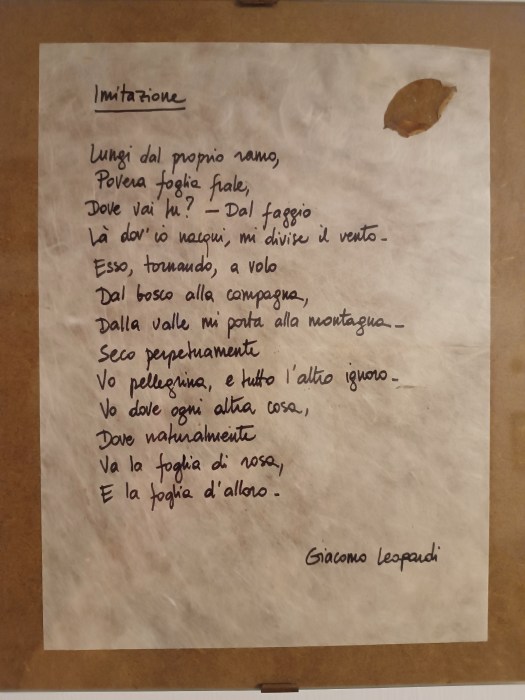 Imitazione
Lungi dal proprio ramo,
Povera foglia frale,
Dove vai tu? – Dal faggio
Là dov'io nacqui, mi divise il vento.
Esso, tornando, a volo
Dal bosco alla campagna,
Dalla valle mi porta alla montagna.
Seco perpetuamente
Vo pellegrina, e tutto l'altro ignoro.
Vo dove ogni altra cosa,
Dove naturalmente
Va la foglia di rosa,
E la foglia d'alloro.
Giacomo Leopardi